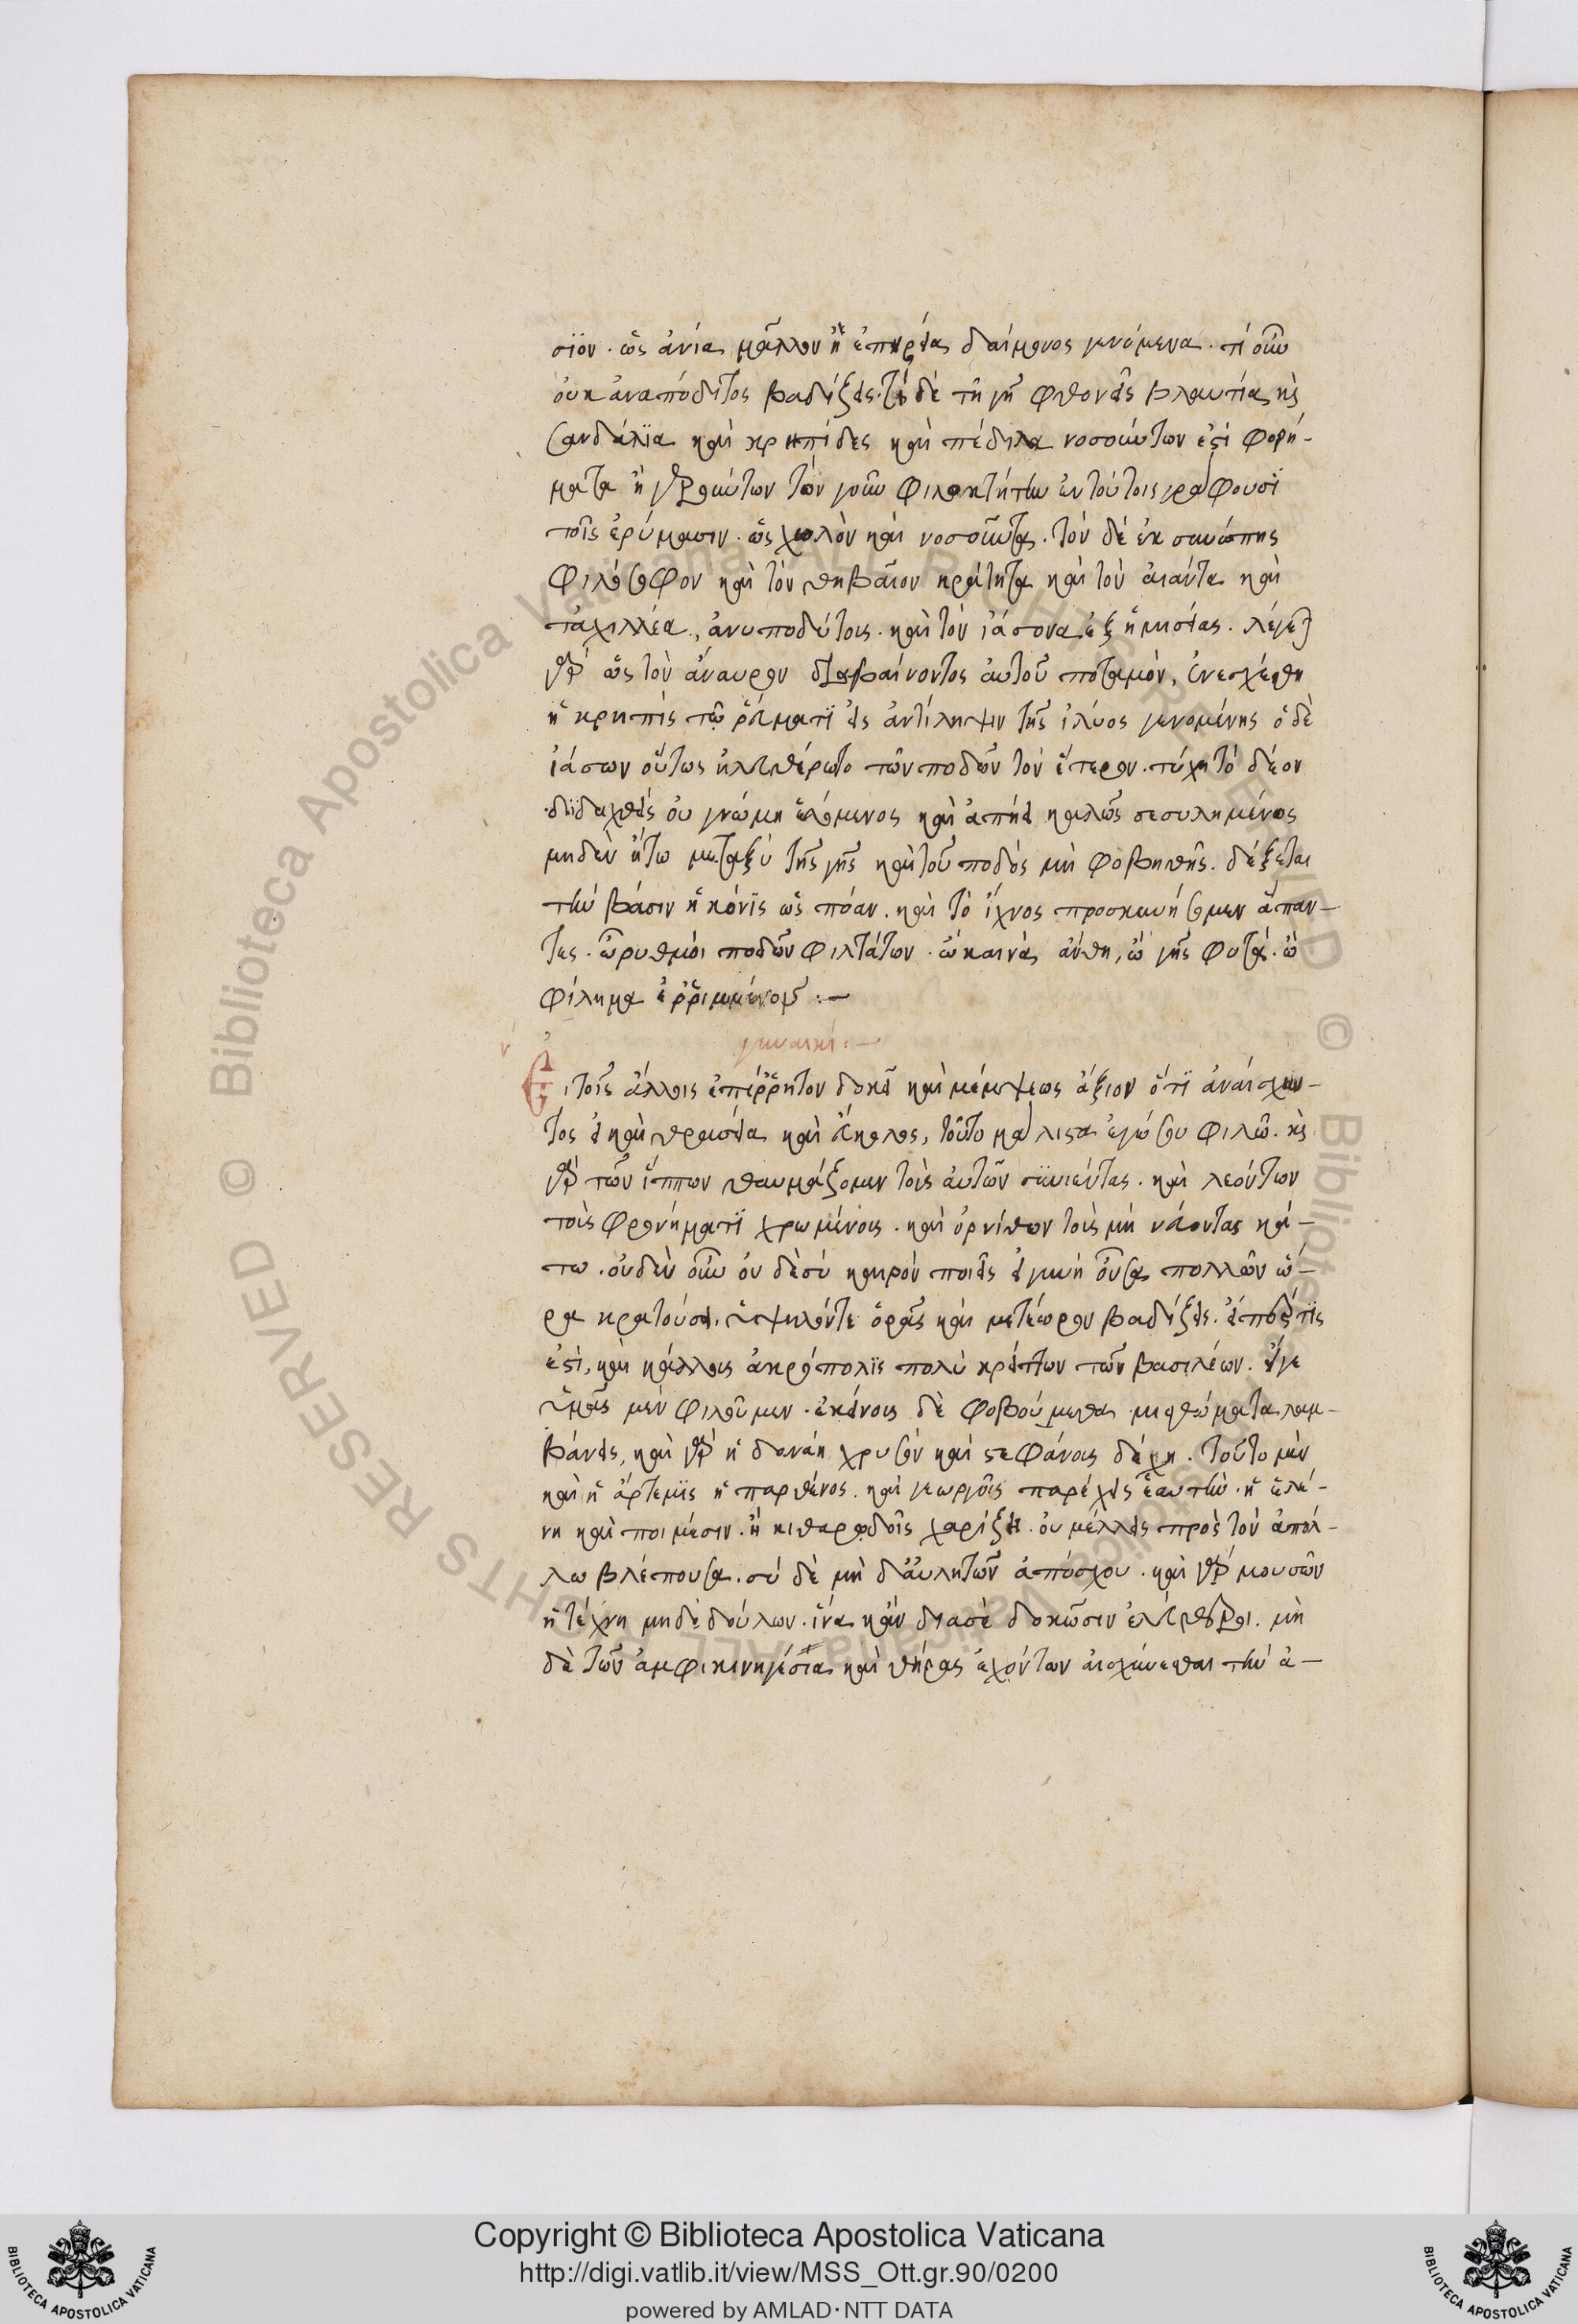 σϊον. ὡς ἀνία μᾶλλον ἢ ἐπηρείας δαίμονος γενόμενα. τί οὖν
οὐκ ἀναπόδητος βαδίζεις. τί δὲ τῆ γῆ φθονεῖς βλαυτία κ̀
σανδάλϊα καὶ κρηπίδες καὶ πέδιλα νοσούντων ἐστὶ φορή-
ματα ἢ γερόντων τὸν γοῦν φιλοκτήτην ἐν τούτοις γράφουσϊ
τοῖς ἐρύμασιν. ὡς χωλὸν καὶ νοσοῦντα. τὸν δὲ ἐκ σινώπης
φιλόσοφον καὶ τὸν θηβαῖον κράτητα καὶ τὸν αἴαντα καὶ
τἀχιλλέα, ἀνυποδύτους. καὶ τὸν ἰάσονα ἐξ ἡμισείας. λέγεται
γὰρ ὡς τὸν ἄναυρον διαβαίνοντος αὐτοῦ ποταμὸν, ἐνεσχέθη
ἡ κρηπὶς τῷ ῥεύματϊ εἰς ἀντίληψιν τῆς ἰλύος γενομένης ὁ δὲ
ἰάσων οὕτως ἠλευθέρωτο τῶν ποδῶν τὸν ἕτερον. τύχη τὸ δέον
διδαχθεὶς οὐ γνώμη ἑλόμενος καὶ ἀπήει καλῶς σεσυλημένος
μηδὲν ἤτω μεταξὺ τῆς γῆς καὶ τοῦ ποδός μὴ φοβηθῆς. δέξεται
τὴν βάσιν ἡ κόνϊς ὡς πόαν. καὶ τὸ ἴχνος προσκυνήσομεν ἅπαν-
τες. ὦ ῥυθμοὶ ποδῶν φιλτάτων. ὦ καινὰ ἄνθη, ὦ γῆς φυτά. ὦ
φίλημα ἐρριμμένον :—
γυναικί :—
Εἰ τοῖς ἄλλοις ἐπίρρητον δοκεῖ καὶ μέμψεως ἄξιον ὅτϊ ἀναίσχυν-
τος εἶ καὶ θρασεῖα καὶ εὔκολος, τοῦτο μάλιστα ἐγώ σου φιλῶ. κ̀
γὰρ τῶν ἵππων θαυμάζομεν τοὺς αὐτῶν συνιέντας. καὶ λεόντων
τοὺς φρονήματϊ χρωμένους. καὶ ὀρνίθων τοὺς μὴ νεύοντας κά-
τω. οὐδὲν οὖν οὐδὲ σὺ καιρὸν ποιεῖς εἰ γυνὴ οὖσα πολλῶν ὥ-
ρα κρατοῦσα. ὑψηλόν τε ὁρᾶς καὶ μετέωρον βαδίζεις. εἴπου τϊς
ἐστὶ, καὶ κάλλους ἀκρόπολϊς πολὺ κρείττων τῶν βασιλέων. εἴγε
ὑμᾶς μὲν φιλοῦμεν. ἐκείνους δὲ φοβούμεθα. μισθώματα λαμ-
βάνεις, καὶ γὰρ ἡ δανάη χρυσὸν καὶ στεφάνους δέχη. τοῦτο μὲν
καὶ ἡ ἄρτεμϊς ἡ παρθένος. καὶ γεωργοῖς παρέχεις ἑαυτὴν. ἡ ἑλέ-
νη καὶ ποιμέσιν. ἢ κιθαρῳδοῖς χαρίζη. οὐ μέλλεις πρὸς τὸν ἀπόλ-
λω βλέπουσα. σὺ δὲ μὴ δ᾽ αὐλητῶν ἀπόσχου. καὶ γὰρ μουσῶν
ἡ τέχνη μηδὲ δούλων. ἵνα κἂν διὰ σὲ δοκῶσιν ἐλεύθεροι. μὴ
δὲ τῶν ἀμφικυνηγέσια καὶ θήρας ἐχόντων αἰσχύνεσθαι τὴν ἀ-
Copyright © Biblioteca Apostolica Vaticana
http://digi.vatlib.it/view/MSS_Ott.gr.90/0200
powered by AMLAD·NTT DATA
BIBLIOTECA APOSTOLICA VATICANA
BIBLIOTECA APOSTOLICA VATICANA